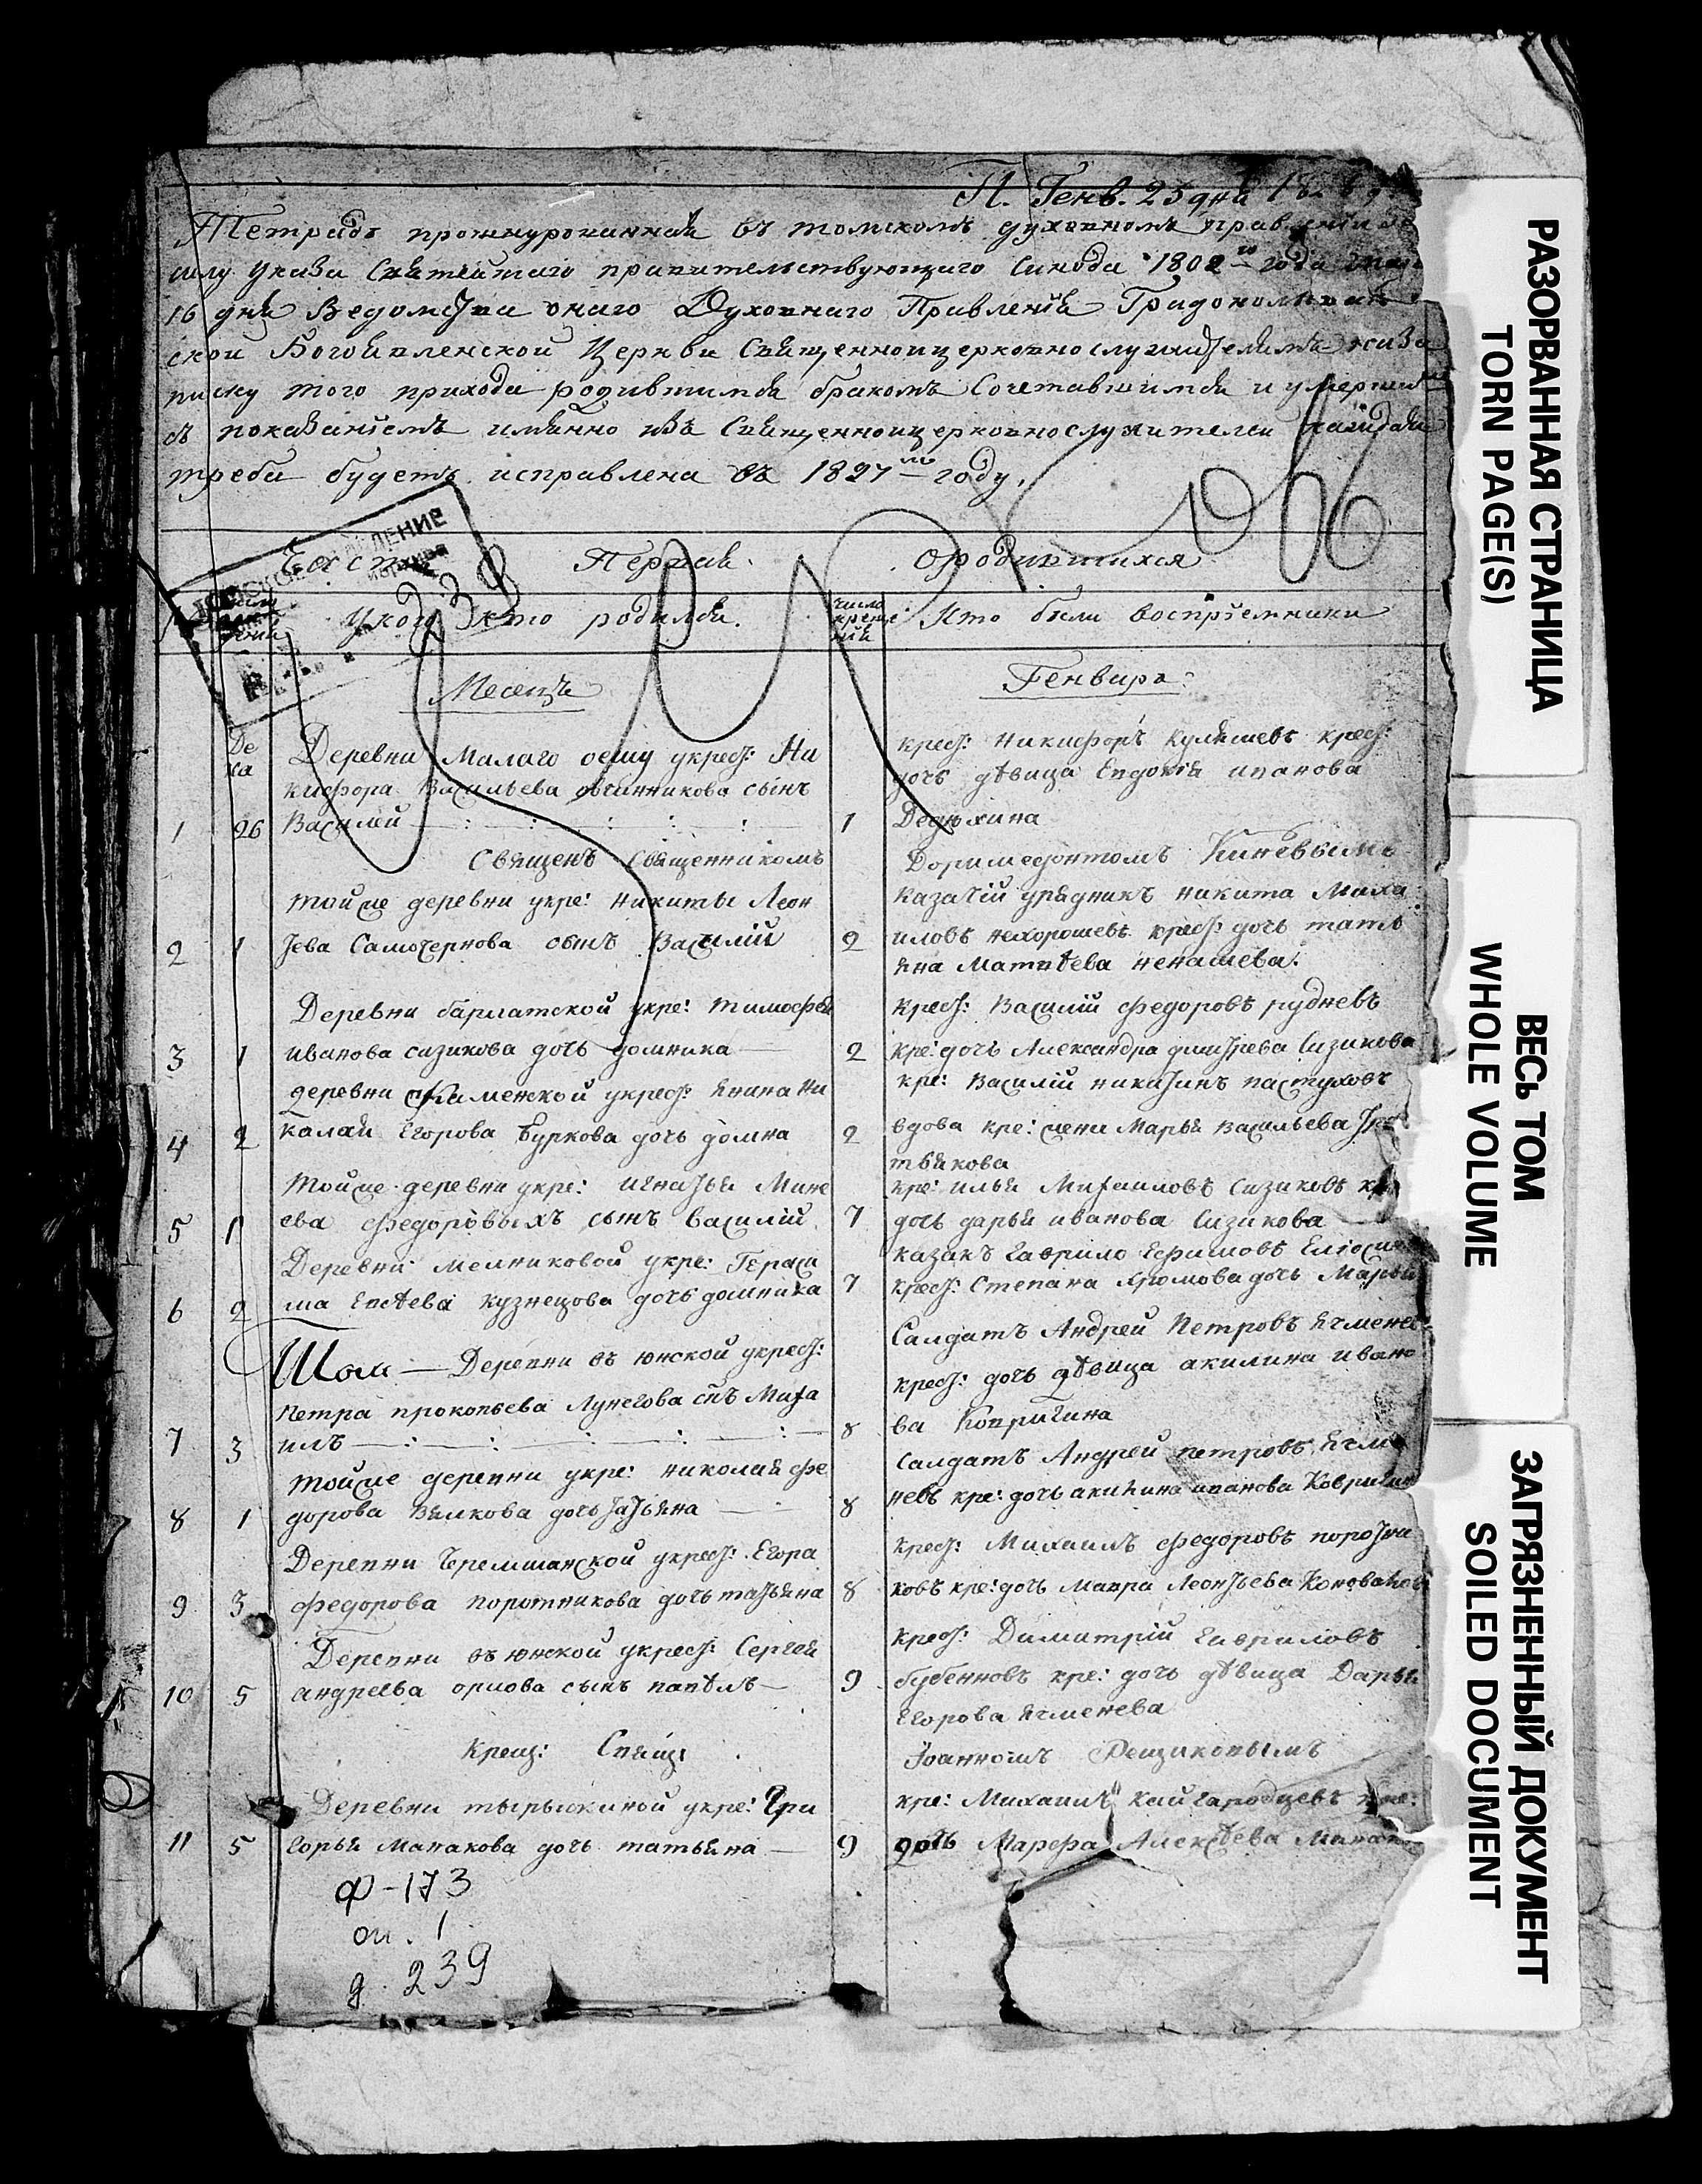 П. Генв. 25 дня
Тетрадь прошнурованная въ томскомъ духовномъ правленіи
силу Указа Святейшаго правительствующаго Синода 1802 го года
16 дня Ведомства онаго Духовнаго Правленія Градоколыван
ской Богоявленской Церкви Священноицерковнослужителямъ
писку того прихода родившимся бракомъ Сочетавшимся и умершим
съ показаніемъ имянно изъ Священноицерковнослужителей
треба будетъ исправлена въ 1827 мъ году.
Часть Первая. Ородившихся
У кого кто родился.
число креще нія
Кто были воспріемники
Месецъ
Генваря:
Де ка
Деревни Малаго оешу укрест: Ни
кифора Васильева овчинникова сынъ
1 26 Василей
1
крест: Никифоръ Кулешевъ крест:
дочь дѣвица Евдокія иванова
Дедюхина
Священъ Священникомъ
Доримедонтомъ
тойже деревни укре: никиты Леон
2 1 тева Самочернова сынъ Василій
2
Казачій урядникъ никита Миха
иловъ нехорошевъ крест дочь тать
яна Матвѣева ненашева.
Деревни барлатской укре: тимофея
3 1 иванова сизикова дочь домника
2
крест: Василій федоровъ рудневъ
кре: дочь Александра дмитрева Сизикова
деревни Каменской укрест:
4 2 Егорова Буркова дочь домна
2
кре: Василій никитинъ пастуховъ
вдова кре: жена Марья васильева
тьякова
тойже деревни укре: игнатья Мине
5 1 ева федоровыхъ сынъ василій
7
кре: илья Михаиловъ сизиковъ
дочь дарья иванова Сизикова
Деревни мелниковой укре: Гераси
6 2 ма Евсѣева кузнецова дочь домника
7
казакъ гаврило Ефимовъ
крест: Степана Хромова дочь Марья
Деревни въ юнской укрест:
Петра прокопьева Лунегова снъ Миха
7 3 илъ
8
Салдатъ Андрей Петровъ
крест: дочь дѣвица акилина ивано
ва Ковригина
тойже деревни укре: николая фе
8 1 дорова Вялкова дочь татьяна
8
Салдатъ Андрей петровъ ячме
невъ кре: дочь акилина иванова Ковригин
Деревни Чремшанской укрест: Егора
9 3 федорова поротникова дочь татьяна
8
крест: Михаилъ федоровъ поротни
ковъ кре: дочь мавра Леонтьева
Деревни въ юнской укрест: Сергея
10 5 андреева орлова сынъ павелъ
9
крест: Димитрій гавриловъ
бубенновъ кре: дочь дѣвица Дарья
Егорова ячменева
Крещ: Свящ:
Іоанномъ Рещиковымъ
Деревни тырышкиной укре: Гри
11 5 горья Манакова дочь татьяна
9
кре: Михаилъ кайгародцевъ кре:
дочь Марфа Алексѣева
ф-173
оп. 1
д. 239
РАЗОРВАННАЯ СТРАНИЦА
TORN PAGE(S)
ВЕСЬ ТОМ
WHOLE VOLUME
ЗАГРЯЗНЕННЫЙ ДОКУМЕНТ
SOILED DOCUMENT